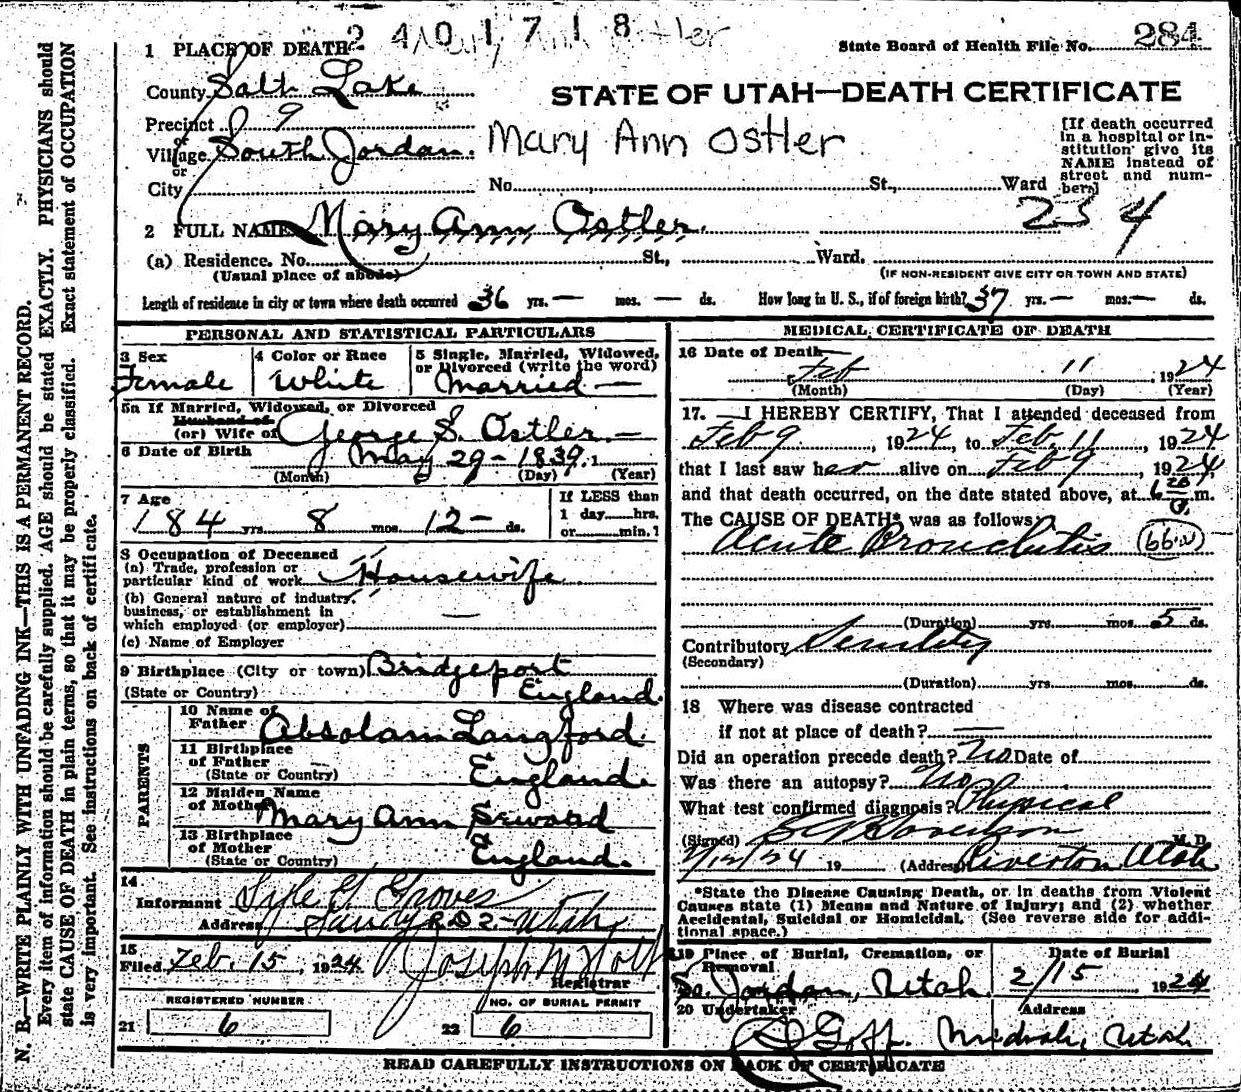 2401718
State Board of Health File No. 284
1 PLACE OF DEATH
County Salt Lake
STATE OF UTAH—DEATH CERTIFICATE
Precinct 9
or
Village South Jordan.
Mary Ann Ostler
[If death occurred
in a hospital or in-
stitution give its
NAME instead of
street and num-
ber.]
or
City No. St., Ward
234
2 FULL NAME Mary Ann Ostler.
(a) Residence. No. St., Ward.
(Usual place of abode)
(IF NON-RESIDENT GIVE CITY OR TOWN AND STATE)
Length of residence in city or town where death occurred 36 yrs. — mos. — ds. How long in U. S., if of foreign birth? 37 yrs. — mos. — ds.
PERSONAL AND STATISTICAL PARTICULARS
3 Sex
Female
4 Color or Race
White
5 Single, Married, Widowed,
or Divorced (write the word)
Married —
5a If Married, Widowed, or Divorced
Husband of
(or) Wife of George S. Ostler. —
6 Date of Birth
May 29 - 1839.
(Month) (Day) (Year)
7 Age
84 yrs. 8 mos. 12 - ds.
If LESS than
1 day hrs.
or min.
8 Occupation of Deceased
(a) Trade, profession or
particular kind of work Housewife
(b) General nature of industry,
business, or establishment in
which employed (or employer) —
(c) Name of Employer
9 Birthplace (City or town) Bridgeport
(State or Country) England.
PARENTS
10 Name of
Father Absolam Langford.
11 Birthplace
of Father —
(State or Country) England.
12 Maiden Name
of Mother Mary Ann Seward
13 Birthplace
of Mother
(State or Country) England.
14
Informant Lyle G. Groves
Address Sandy R D 2 - Utah
15
Filed Feb. 15, 1924 Joseph M Holt
Registrar
REGISTERED NUMBER
21 6
NO. OF BURIAL PERMIT
22 6
MEDICAL CERTIFICATE OF DEATH
16 Date of Death—
Feb 11 1924
(Month) (Day) (Year)
17. I HEREBY CERTIFY, That I attended deceased from
Feb 9, 1924, to Feb. 11, 1924
that I last saw her alive on Feb 9, 1924,
and that death occurred, on the date stated above, at 6 20 P. m.
The CAUSE OF DEATH* was as follows:
Acute Bronchitis
(Duration) yrs. mos. 5 ds.
Contributory Senility
(Secondary)
(Duration) yrs. mos. ds.
18 Where was disease contracted
if not at place of death? —
Did an operation precede death? No Date of
Was there an autopsy? No
What test confirmed diagnosis? Physical
(Signed) M. D.
2/12/24 19 (Address) Riverton Utah
*State the Disease Causing Death, or in deaths from Violent
Causes state (1) Means and Nature of Injury; and (2) whether
Accidental, Suicidal or Homicidal. (See reverse side for addi-
tional space.)
19 Place of Burial, Cremation, or
Removal
So. Jordan, Utah.
Date of Burial
2/15 1924
20 Undertaker
Goff.
Address
Midvale, Utah
READ CAREFULLY INSTRUCTIONS ON BACK OF CERTIFICATE
N. B.—WRITE PLAINLY WITH UNFADING INK—THIS IS A PERMANENT RECORD.
Every item of information should be carefully supplied. AGE should be stated EXACTLY. PHYSICIANS should
state CAUSE OF DEATH in plain terms, so that it may be properly classified. Exact statement of OCCUPATION
is very important. See instructions on back of certificate.